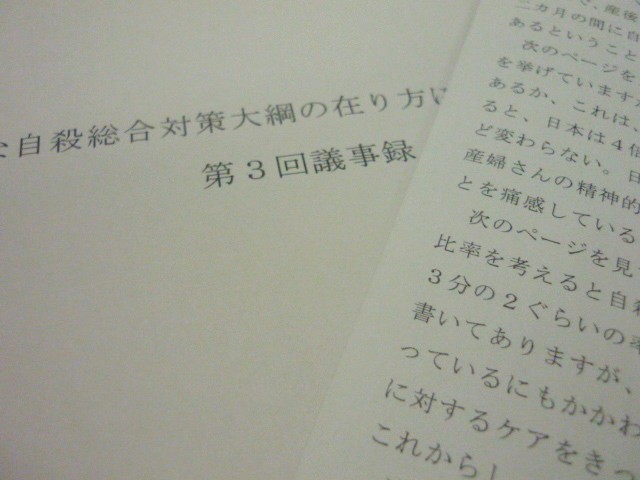 な自殺総合対策大綱の在り方に
第3回議事録
で、産後
二カ月の間に自
あるということ
次のページを
を挙げています
あるか、これは、
ると、日本は4倍
ど変わらない。日
産婦さんの精神的
とを痛感している
次のページを見
比率を考えると自殺
3分の2ぐらいの率
書いてありますが、
っているにもかかわ
に対するケアをきっ
これからし